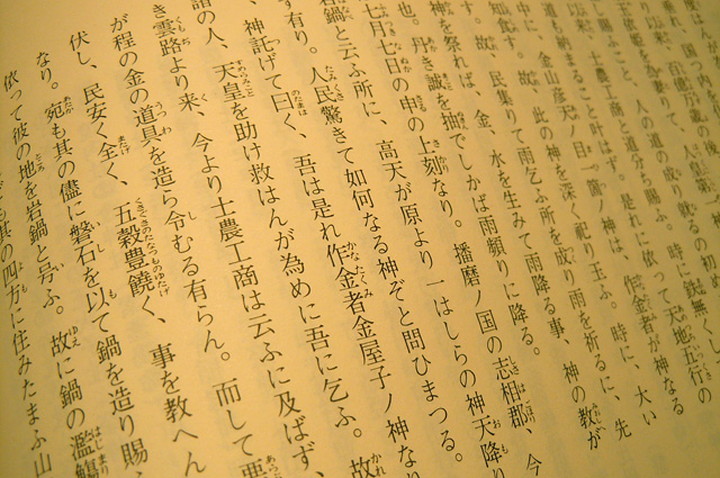 垂れ、国つ内を
以来、百億万歳の後
玉依姫を為参りて、人皇第一
賜ふこと、人の道の成り就るの初め
以来、土農工商と道分ち賜ふ。時に鋭無くし
道も納まること叶はず。是れに依って天地五行の
中に、金山彦天ノ目一箇ノ神は、作金者が神なる
故、此の神を深く祀り玉ふ。時に、大い
知食す。故、民集りて雨乞ふ所を成り雨を祈るに、先
神を祭れば、金、水を生みて雨降る事、神の教が
也。丹き誠を抽でしかば雨頻りに降る。
七月七日の申の上刻なり。播磨ノ国の志相郡、今
岩鍋と云ふ所に、高天が原より一はしらの神天降り
ず有り。人民驚きて如何なる神ぞと問ひまつる。
神託げて曰く、吾は是れ作金者金屋子ノ神なり
諸の人、天皇を助け救はんが為めに吾に乞ふ。故
き雲路より来、今より士農工商は云ふに及ばず、
が程の金の道具を造ら令むる有らん。而して悪
伏し、民安く全く、五穀豊饒く、事を教へん
なり。宛も其の儘に磐石を以て鍋を造り賜
依って彼の地を岩鍋と号ふ。故に鍋の濫觴
も其の四方に住みたまふ山